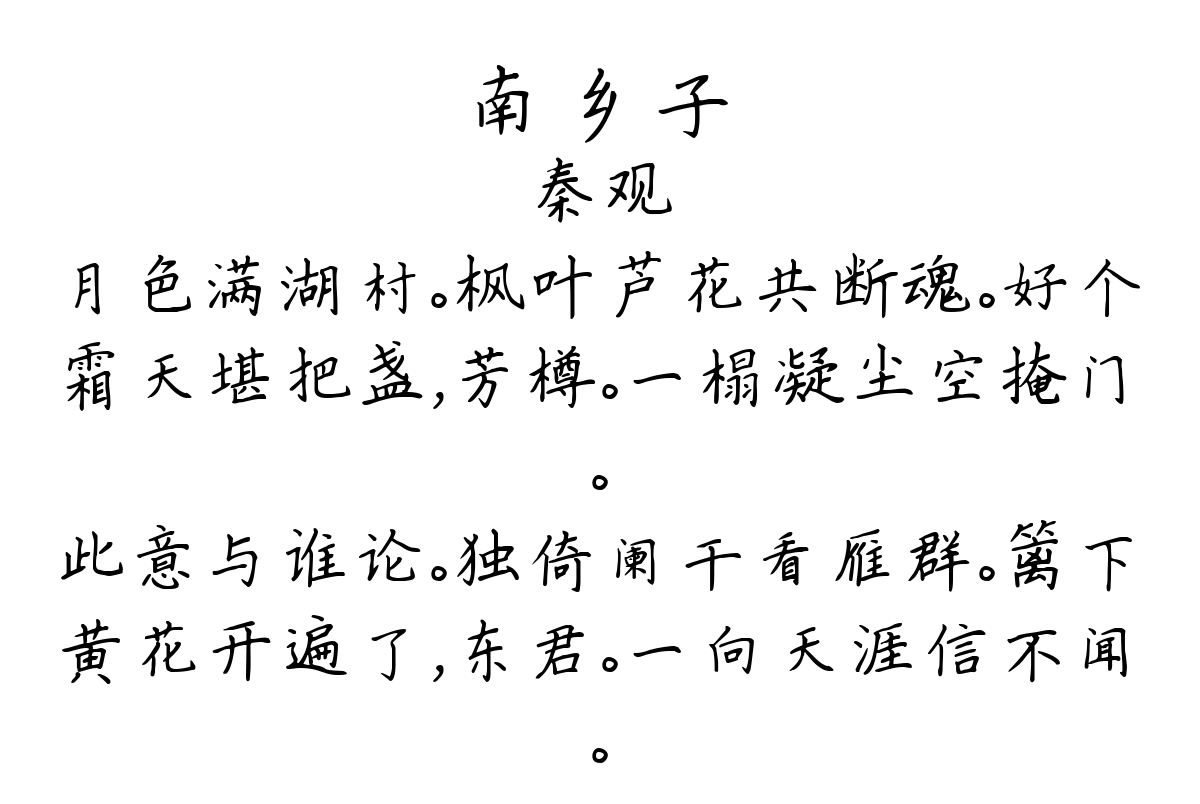 南乡子
秦观
月色满湖村。枫叶芦花共断魂。好个
霜天堪把盏,芳樽。一榻凝尘空掩门
。
此意与谁论。独倚阑干看雁群。篱下
黄花开遍了,东君。一向天涯信不闻
。